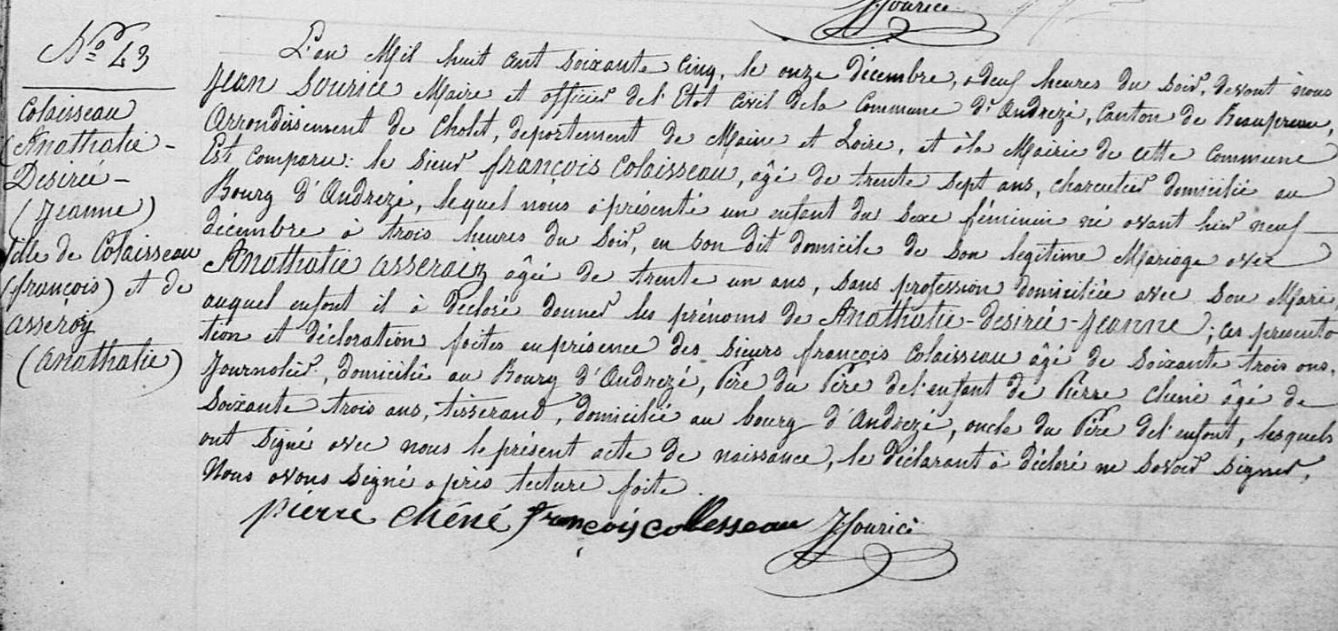 J Sourice
N° 43
Colaisseau
(Anathalie-
Desirée-
(Jeanne)
fille de Colaisseau
(françois) et de
asseray
(anathalie)
L'an Mil huit cent soixante cinq, le onze décembre, a deux heures du soir, devant nous
Jean Sourice Maire et officier de l'Etat Civil de la Commune d'Andrezé, Canton de Beaupreau,
Arrondissement de Cholet, departement de Maine et Loire, et à la Mairie de cette Commune
Est comparu: le sieur françois Colaisseau, âgé de trente sept ans, charcutier domicilié au
Bourg d'Andrezé, lequel nous à présenté un enfant du sexe féminin né avant hier neuf
décembre à trois heures du soir, en son dit domicile de son legitime Mariage avec
Anathalie asseraiy âgée de trente un ans, sans profession domiciliée avec son Mari
auquel enfant il à déclaré donner les prénoms de Anathalie-desirée-Jeanne; ces presenta
tion et déclaration faites en présence des sieurs françois Colaisseau âgé de soixante trois ans,
Journalier, domicilié au Bourg d'Andrezé, Père du Père de l'enfant de Pierre Chéné âgé de
soixante trois ans, tisserand, domicilié au bourg d'Andrezé, oncle du Père de l'enfant, lesquels
ont signé avec nous le présent acte de naissance, le déclarant à déclaré ne savoir signer,
Nous avons signé après lecture faite
pierre chéné françois collesseau J Sourice